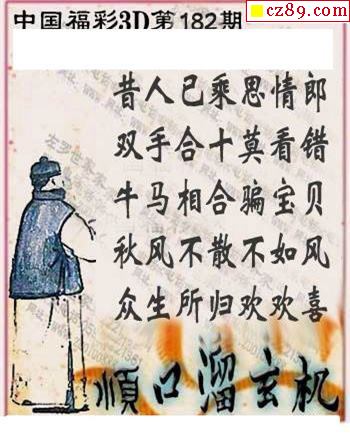 cz89.com
中国福彩3D第182期
昔人已乘思情郎
双手合十莫看错
牛马相合骗宝贝
秋风不散不如风
众生所归欢欢喜
順口溜玄机